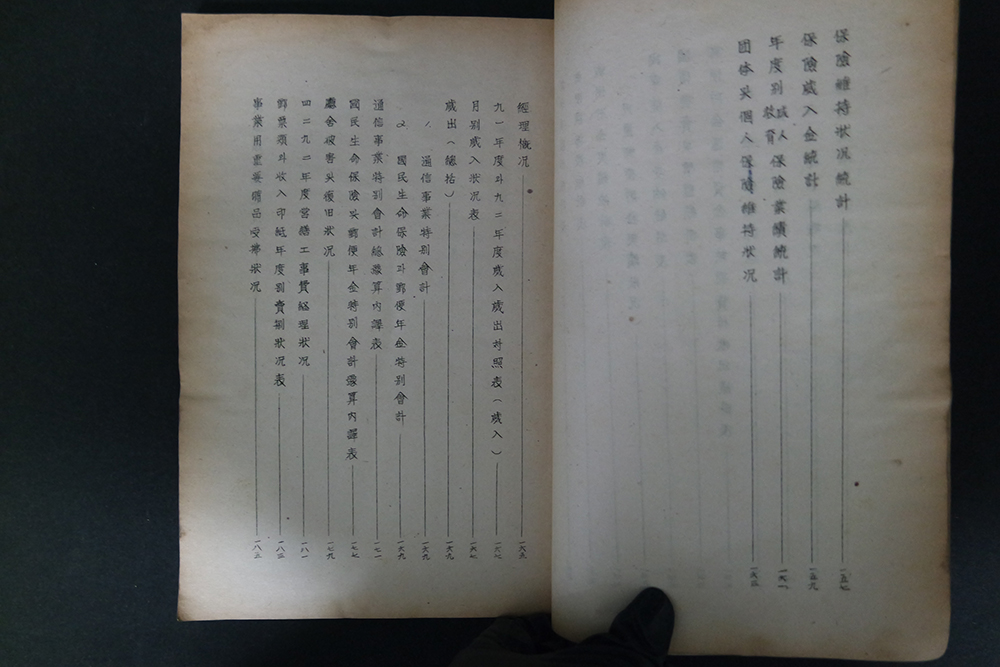 保險維持狀況統計 一五七
保險歲入金統計 一五九
年度別 成人 敎育 保險業績統計 一六一
団体及個人保險維持狀况 一六三
經理槪况 一六五
九一年度와九二年度歲入歲出対照表(歲入) 一六七
月別歲入狀况表 一六七
歲出(總括) 一六九
1. 通信事業特別會計 一六九
2. 國民生命保險과郵便年金特別會計 一六九
通信事業特別會計總豫算內譯表 一七一
國民生命保險及郵便年金特別會計豫算內譯表 一七七
廳舍被害及復旧狀况 一七九
四二九二年度營繕工事費経理狀况 一八一
郵票類와收入印紙年度別賣捌狀况表 一八三
事業用重要備品受拂狀况 一八三